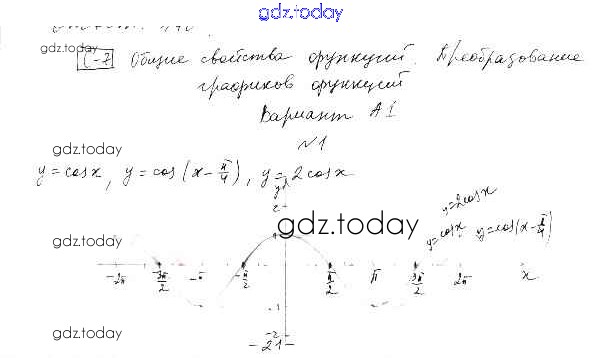 gdz.today
gdz.today
С-7 Общие свойства функций. Преобразование
графиков функций
Вариант А1
gdz.today
№1
y = cos x, y = cos(x - π/4), y = 2 cos x
y
2
y=2cosx
gdz.today
y=cosx y=cos(x-π/4)
gdz.today
1
-2π -3π/2 -π -π/2 π/2 π 3π/2 2π x
-1
gdz.today
-2
-21-